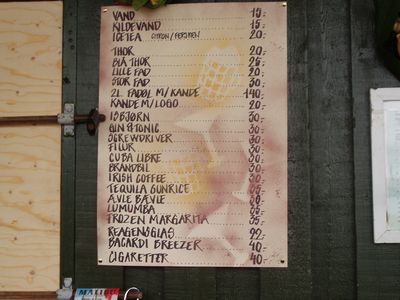 VAND 15.-
KILDEVAND 15.-
ICETEA CITRON/FERSKEN 20.-
THOR 20.-
BLÅ THOR 25.-
LILLE FAD 20.-
STOR FAD 30.-
2L. FADØL M/KANDE 140.-
KANDE M/LOGO 20.-
ISBJØRN 30.-
GIN & TONIC 30.-
SCREWDRIVER 30.-
FILUR 30.-
CUBA LIBRE 30.-
BRANDBIL 30.-
IRISH COFFEE 30.-
TEQUILA SUNRICE 35.-
ÆVLE BÆVLE
LUMUMBA 35.-
FROZEN MARGARITA 35.-
REAGENSGLAS 22.-
BACARDI BREEZER 40.-
CIGARETTER 40.-
MALIBU